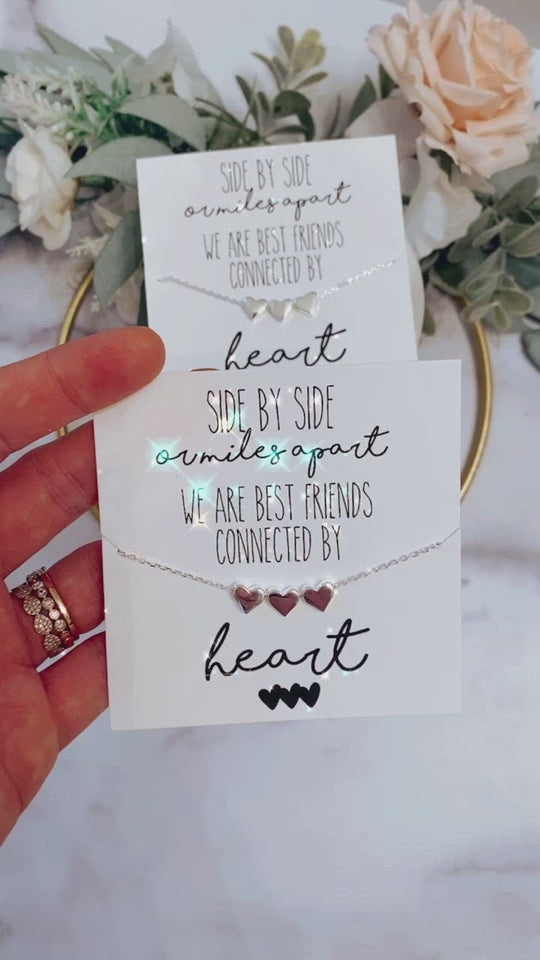 SIDE BY SIDE
or miles apart
WE ARE BEST FRIENDS
CONNECTED BY
heart
SIDE BY SIDE
or miles apart
WE ARE BEST FRIENDS
CONNECTED BY
heart